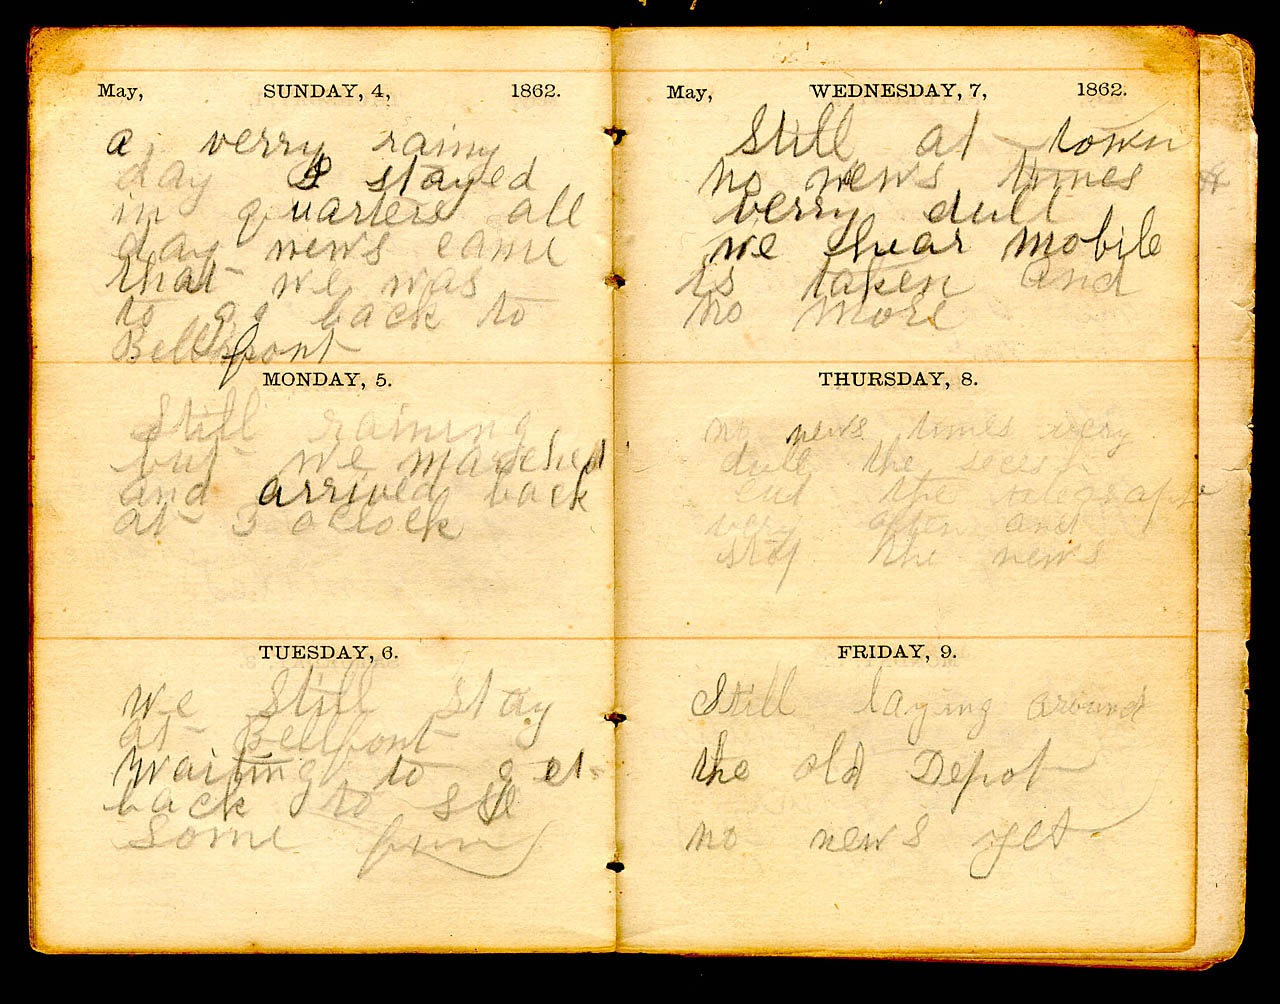 May, SUNDAY, 4, 1862.
a verry rainy
day I stayed
in quarters all
day news came
that we was
to go back to
Bellfpont
MONDAY, 5.
Still raining
but we marched
and arrived back
at 3 oclock
TUESDAY, 6.
we Still stay
at Bellfpont
Waiting to get
back to see
some fun
May, WEDNESDAY, 7, 1862.
Still at town
no news times
verry dull
we hear mobile
is taken and
no more
THURSDAY, 8.
no news times very
dull the secesh
cut the telegraph
very often and
stop the news
FRIDAY, 9.
Still laying around
the old Depot
no news yet